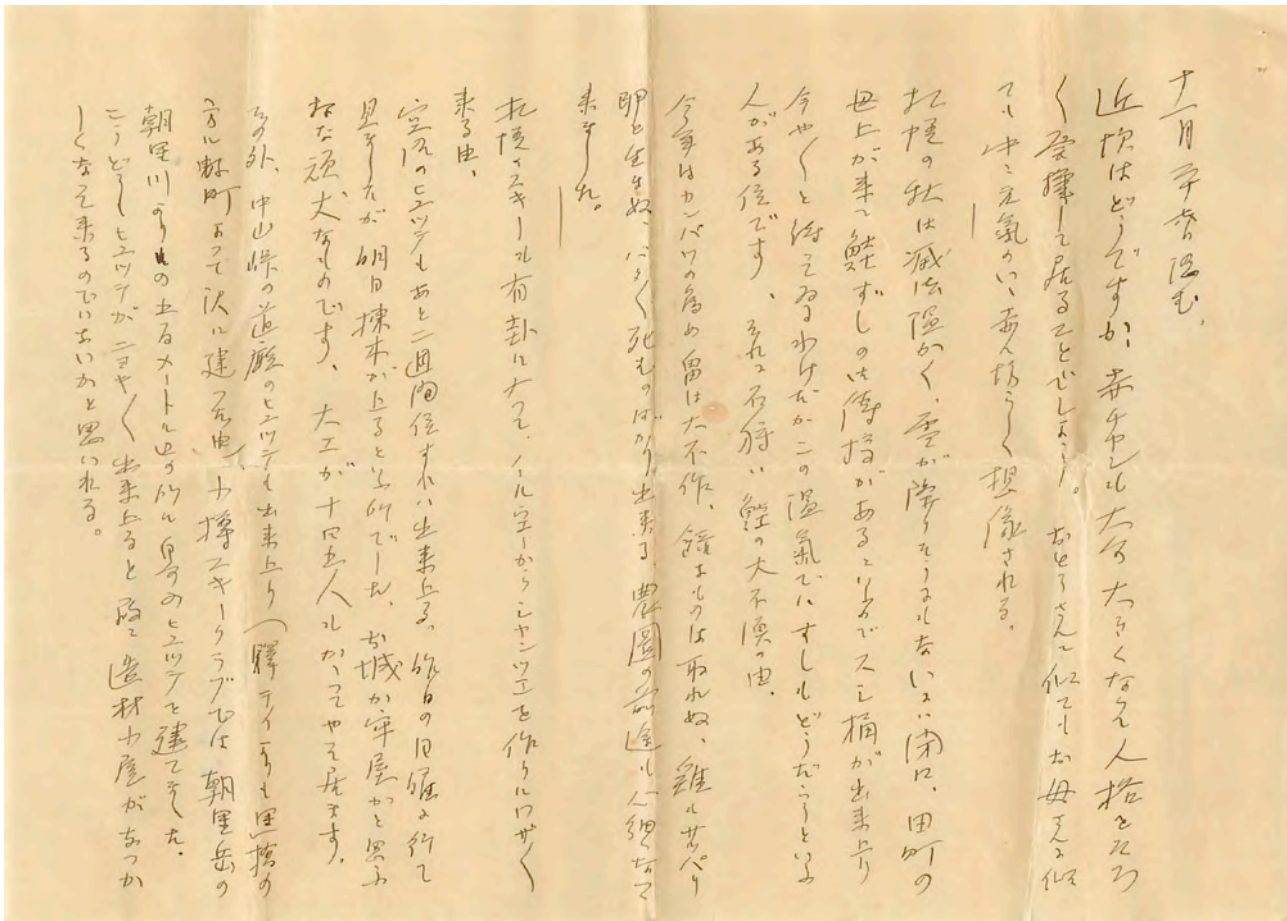 十一月 平沓温む、
近頃はどうですか、赤チャンも大分大きくなって人格をそろ
く発揮して居ることでしょう。おとうさんに似てもお母さんに似
ても中々元氣のいい赤ん坊らしく想像される。
札幌の秋は滅法温かく、雪が降りそうにもないのに閉口、田町の
母上が来て鮭ずしの御伝授があるというのでスシ桶が出来上り
今や〱と待っているわけだがこの温氣でハすしもどうだろうという
人がある位です、それに石狩ハ鮭の大不漁の由。
今年はカンバツの為め畠は大不作、餘計ものは取れぬ、雞もサッパリ
卵を生まぬ、バタ〱死ぬものばかり出来る、農園の前途も心細くなって
来ました。
札幌のスキーも有卦に入って、ノルウェーからシャンツェを作りにワザ〱
来る由、
空沼のヒュッテもあと二週間位すれハ出来上る、昨日の日曜に行って
見ましたが明日棟木が上るという所でした、お城か牢屋かと思ふ
な頑丈なものです、大工が十四五人もかってやって居ます。
その外、中山峠の道廳のヒュッテも出来上り
方に
よって沢に建った由、小樽スキークラブでは朝里岳の
朝里川よりの五百メートル位の所に
ヒュッテを建てました。
こうどしどしヒュッテがニョキ〱出来上ると段々造材小屋がなつか
しくなって来るのでハないかと思ハれる。